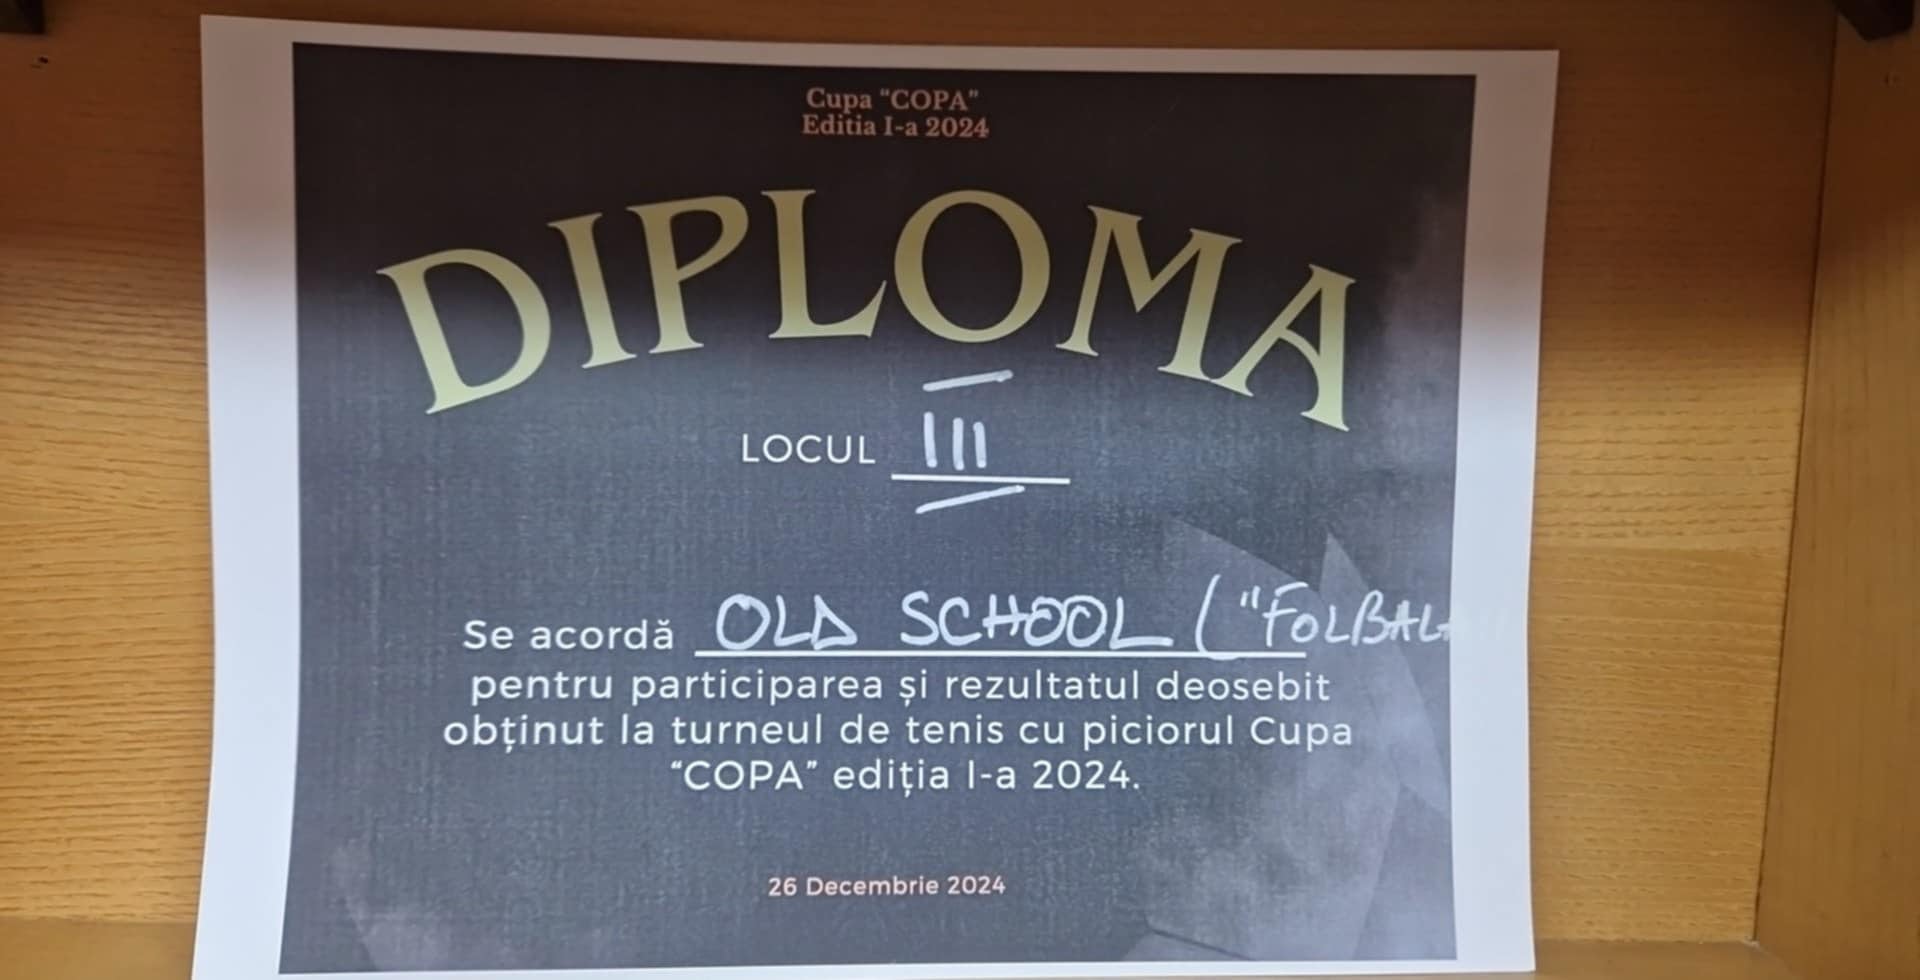 Cupa “COPA”
Editia I-a 2024
DIPLOMA
LOCUL III
Se acordă OLD SCHOOL ("FOLBAL
pentru participarea și rezultatul deosebit
obținut la turneul de tenis cu piciorul Cupa
“COPA” ediția I-a 2024.
26 Decembrie 2024